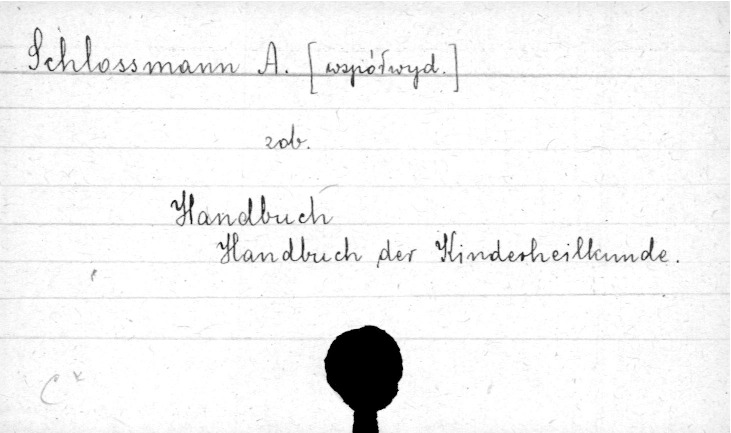 Schlossmann A. [współwyd.]
zob.
Handbuch
Handbuch der Kinderheilkunde.
C x